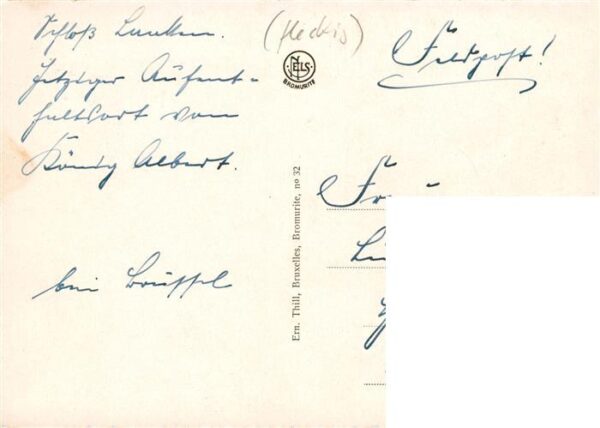 Schloß Laeken.
Jetziger Aufent-
haltsort von
König Albert.
bei Brüssel
Feldpost!
NELS
BROMURITE
Ern. Thill, Bruxelles, Bromurite, nº 32